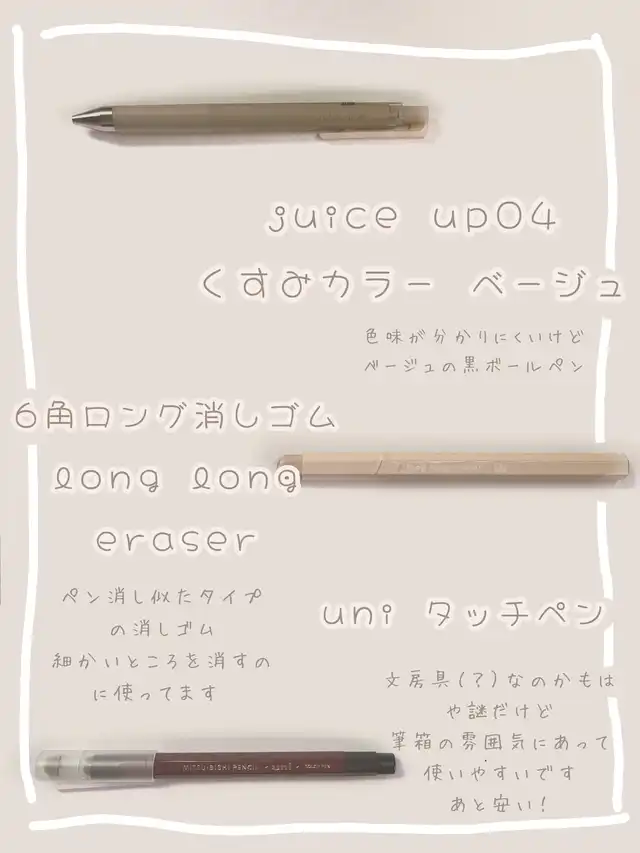 juice up04
くすみカラー ベージュ
色味が分かりにくいけど
ベージュの黒ボールペン
6角ロング消しゴム
long long
eraser
ペン消し似たタイプ
の消しゴム
細かいところを消すの
に使ってます
uni タッチペン
文房具(?)なのかもは
や謎だけど
筆箱の雰囲気にあって
使いやすいです
あと安い!
MITSU-BISHI PENCIL